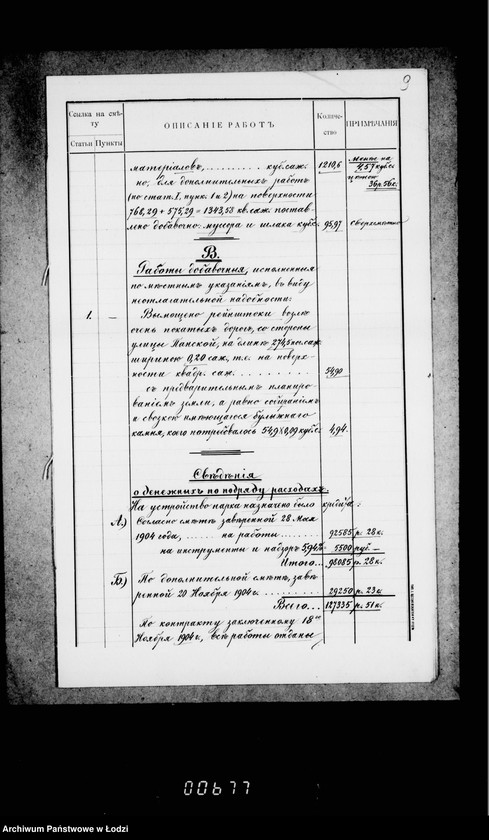 9
Ссылка на смѣ-
ту
Статьи Пункты
ОПИСАНІЕ РАБОТЪ
Количе-
ство
ПРИМѢЧАНІЯ
матеріаловъ, .......... куб. саж. 1210,6 менѣе на 4,57 куб. с.
но, для дополнительныхъ работъ
(по стат. 1, пунк. 1 и 2) на поверхности 36р 56к.
768,29 + 575,29 = 1343,58 кв. саж. постав-
лено добавочно мусора и шлака куб. с. 95,97 сверхсмѣтно
В.
Работы добавочныя, исполненныя
по мѣстнымъ указаніямъ, въ виду
неотлагательной надобности:
1. — Вымощено рейнштоки возлѣ
очень покатыхъ дорогъ, со стороны
улицы Панской, на длинѣ 274,5 пог. саж.
шириною 0,20 саж., т.е. на поверх-
ности квадр. саж. .......... 54,90
съ предварительнымъ планиро-
ваніемъ земли, а равно собираніемъ
и свозкою имѣющагося булыжнаго
камня, коего потребовалось 54,9 х 0,09 куб. с. 4,94
Свѣдѣнія
о денежныхъ по подряду расходахъ.
На устройство парка назначено было кредита:
А.) Согласно смѣтѣ завѣренной 28 Мая
1904 года, ...... на работы ...... 92585 р. 28 к.
на инструменты и надзоръ 5,94% - 5500 руб. —
Итого... 98085 р. 28 к.
Б.) По дополнительной смѣтѣ, завѣ-
ренной 20 Ноября 1904 г. .......... 29250 р. 23 к.
Всего... 127335 р. 51 к.
По контракту заключенному 18го
Ноября 1904 г., всѣ работы отданы
00677
Archiwum Państwowe w Łodzi